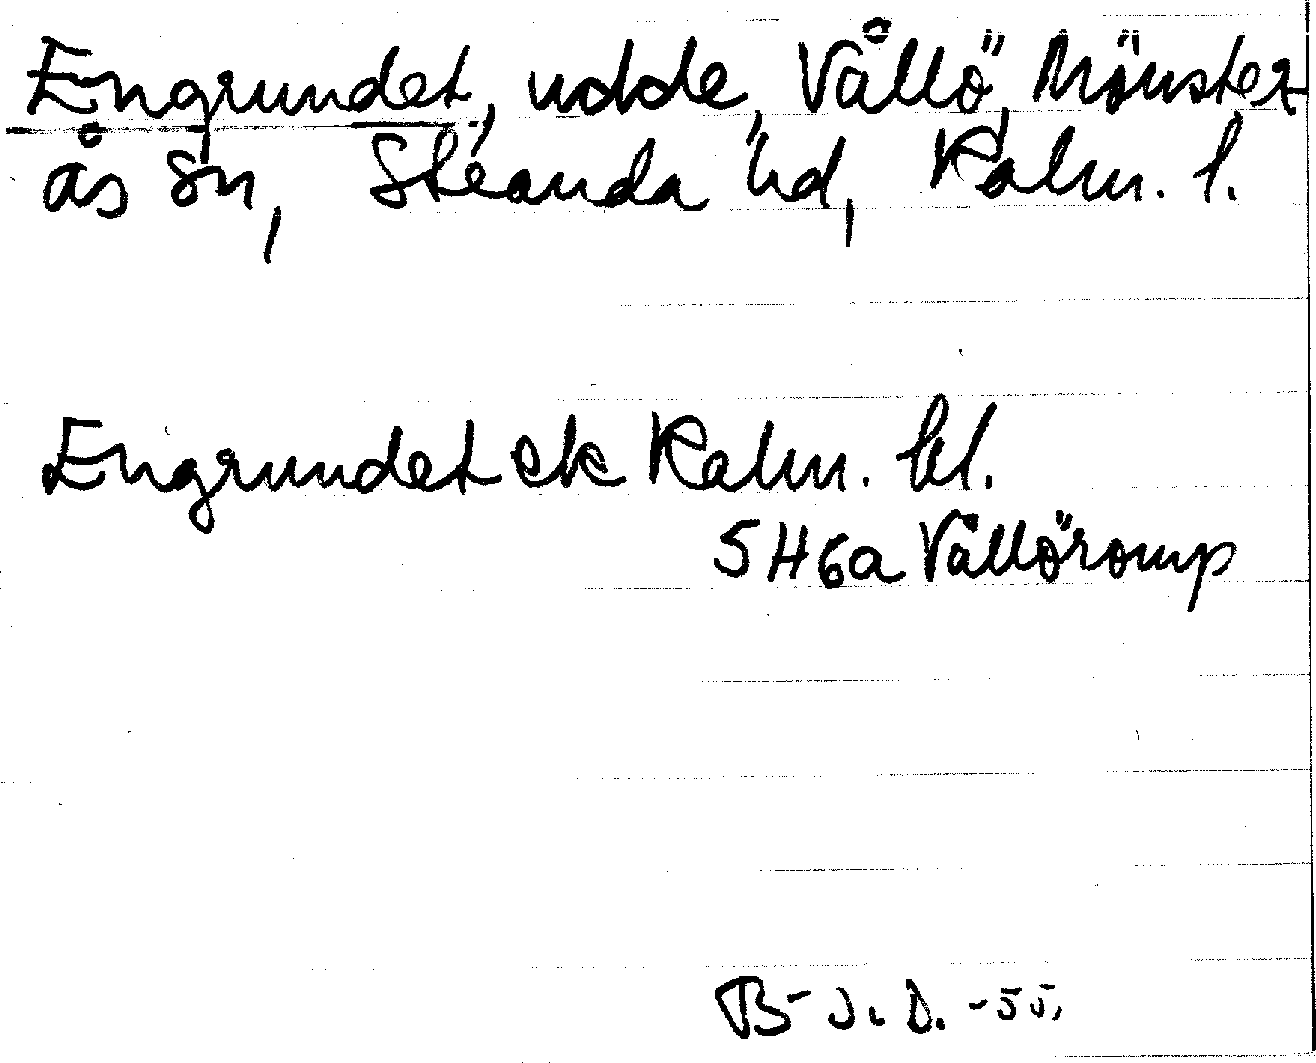 Engrundet, udde, Vållö, Mönster
ås sn, Stranda hd, Kalm. l.
Engrundet ek Kalm. bl.
5 H6a Vållöromp
B-J. D. -55.